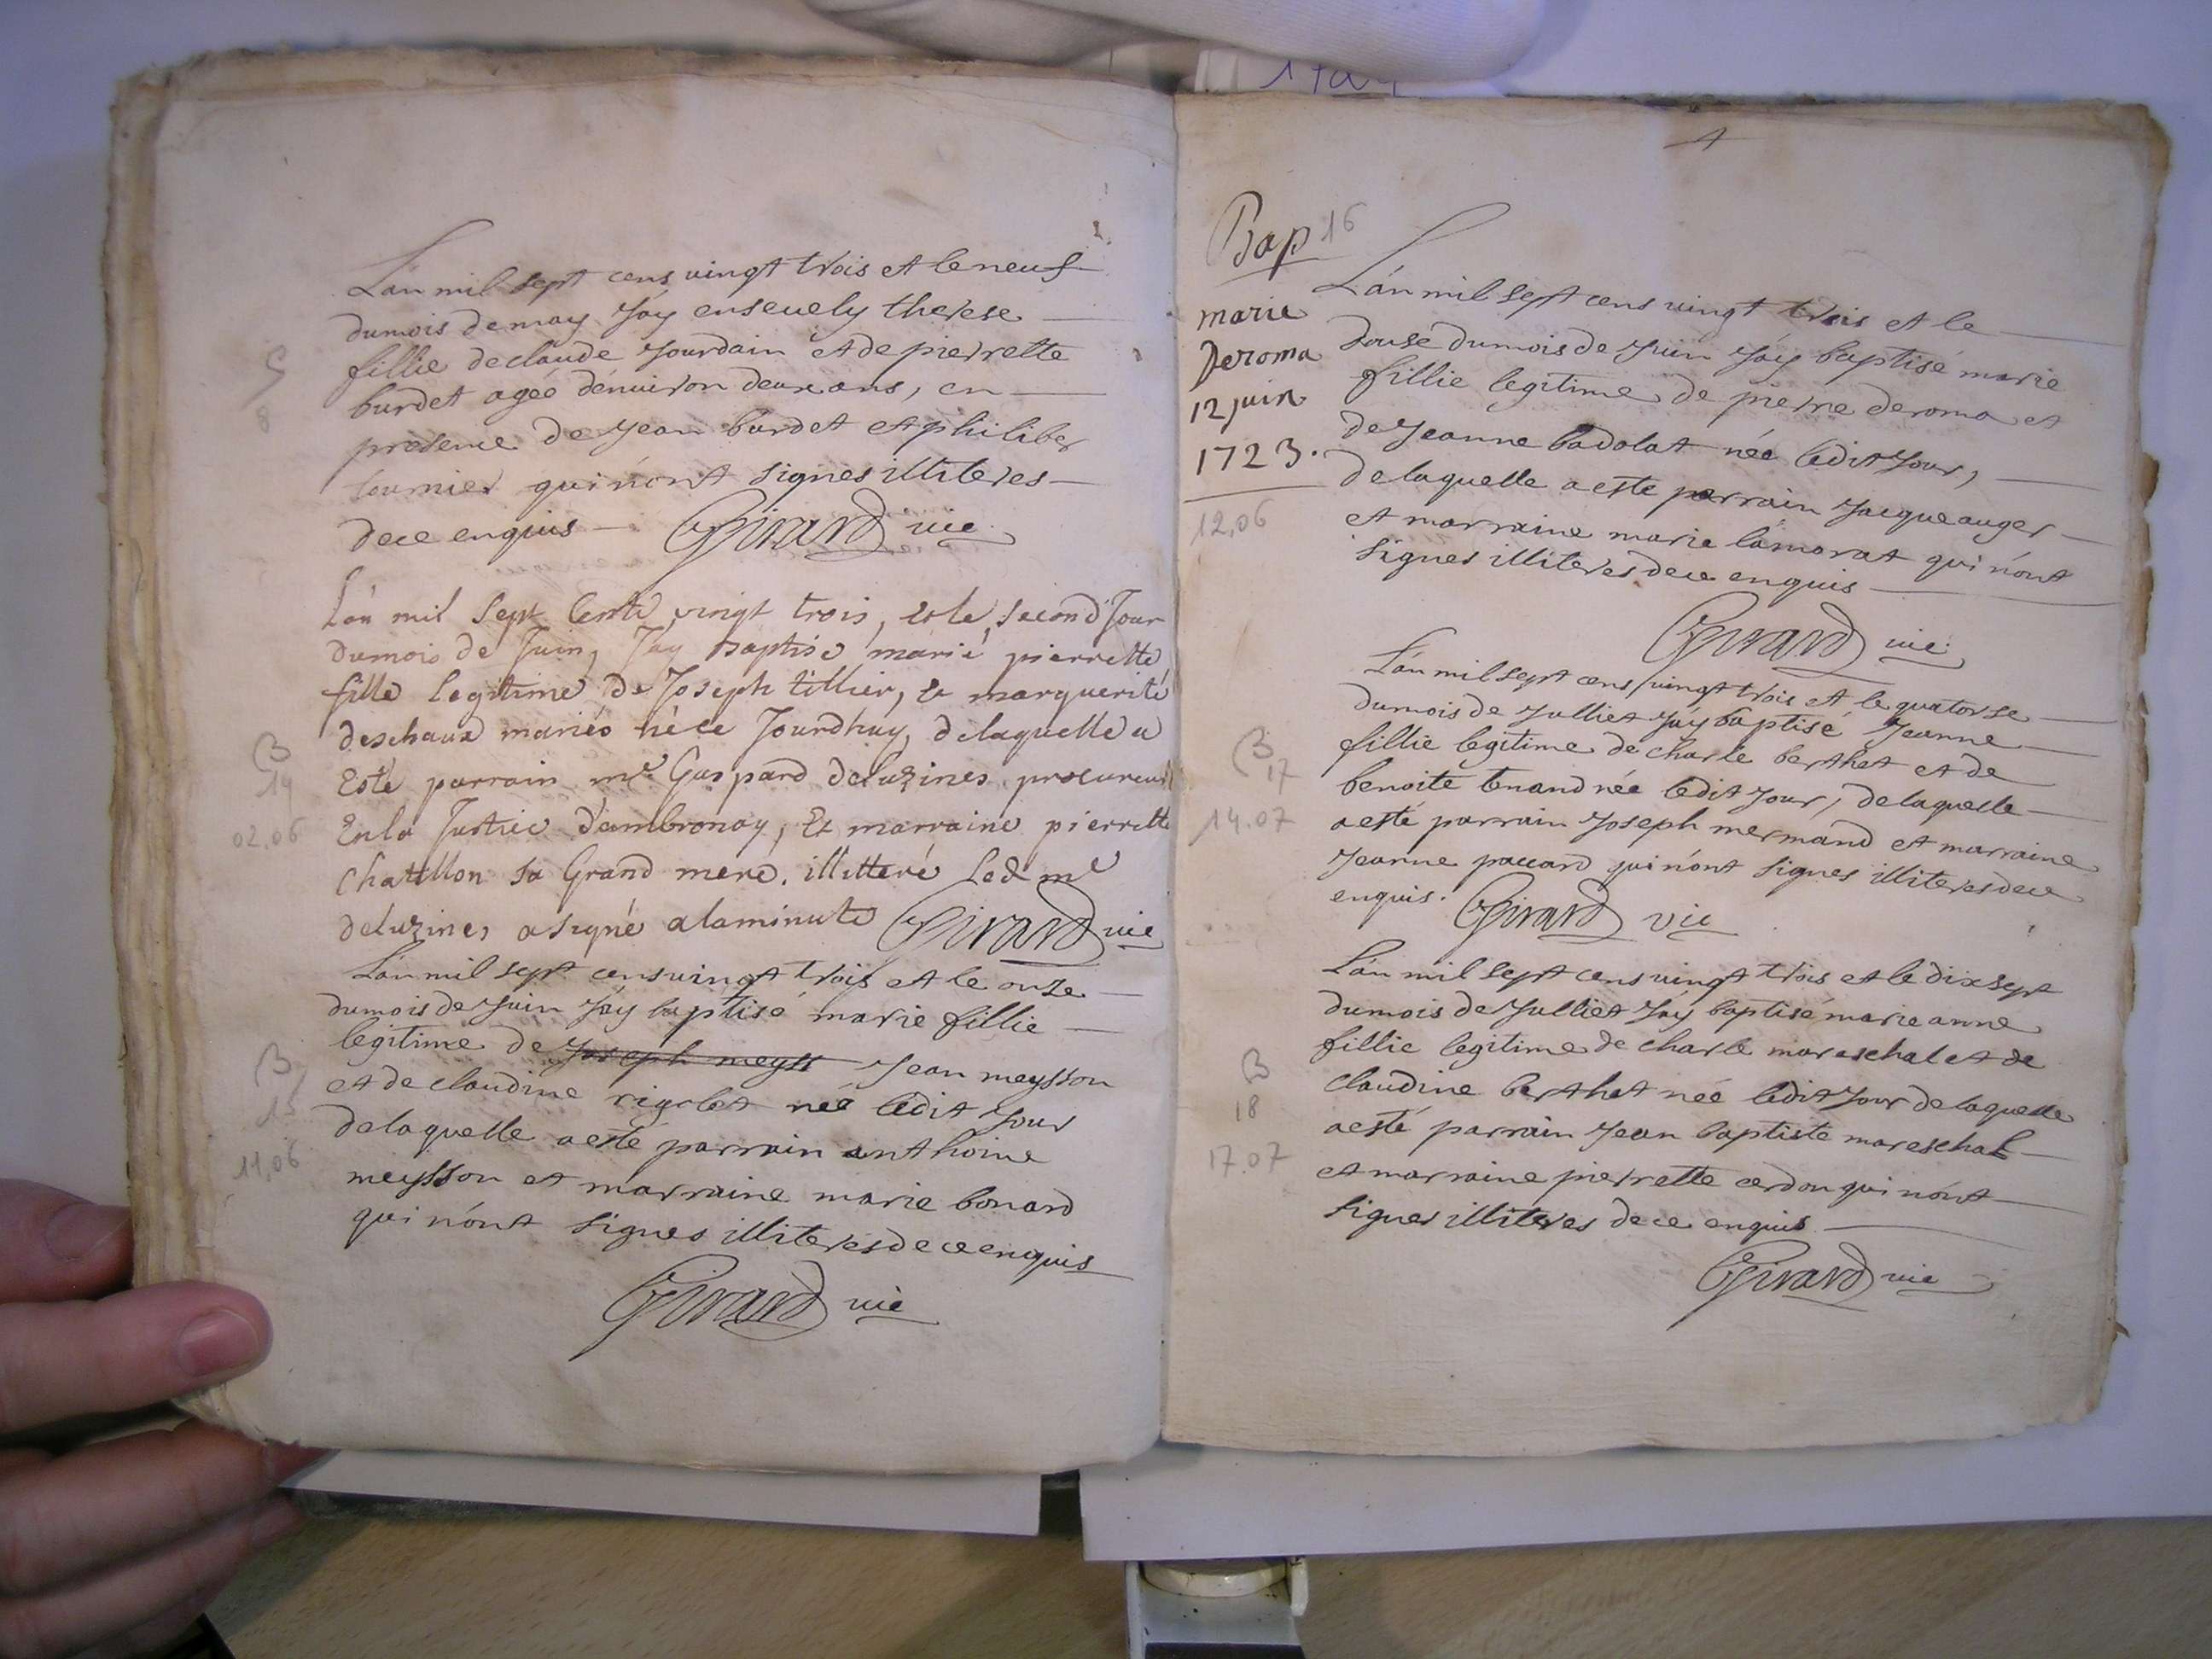 L'an mil sept cens vingt trois et le neuf
dumois de may J'ay ensevely therese
fillie declaude Jourdain et de pierrette
burdet agée d'enuiron deux ans, en
presence de Jean burdet et philiber
fournier qui n'ont signes illiteres
de ce enquis Girard vic
S
8
L'an mil sept Cents vingt trois, et le second Jour
dumois de Juin, J'ay Baptisé marie pierrette
fille legitime de Joseph tillier, et marguerite
deschaux mariés née ce Jourdhuy, delaquelle a
Esté parrain mre Gaspard deluzines procureur
En la Justice d'ambronay, Et marraine pierrette
Chatillon sa Grand mere. illitteré Led mr
deluzines a signé alaminute Girard vic
B
14
02.06
L'an mil sept cens vingt trois et le onze
dumois de Juin J'ay baptisé marie fillie
legitime de Joseph meyss Jean meysson
et de claudine rigolet née ledit Jour
delaquelle a esté parrain anthoine
meysson et marraine marie bonard
qui n'ont signes illiteres de ce enquis
Girard vic
B
15
11.06
4
Bap 16
marie
Deroma
12 juin
1723.
12.06
L'an mil sept cens vingt trois et le
douse dumois de Juin J'ay baptisé marie
fillie legitime de pierre deroma et
de Jeanne badolat née ledit Jour,
delaquelle a esté parrain Jacque auger
et marraine marie lamorat qui n'ont
signes illiteres de ce enquis
Girard vic
L'an mil sept cens vingt trois et le quatorse
dumois de Julliet J'ay baptisé Jeanne
fillie legitime de charle berthet et de
benoite tenand née ledit Jour, delaquelle
a esté parrain Joseph mermand et marraine
Jeanne paccard qui n'ont signes illiteres de ce
enquis. Girard vic
B
17
14.07
L'an mil sept cens vingt trois et le dixsept
dumois de Julliet J'ay baptisé marie anne
fillie legitime de charle mareschal et de
claudine berthet née ledit Jour delaquelle
a esté parrain Jean baptiste mareschal
et marraine pierrette cerdon qui n'ont
signes illiteres de ce enquis
Girard vic
B
18
17.07